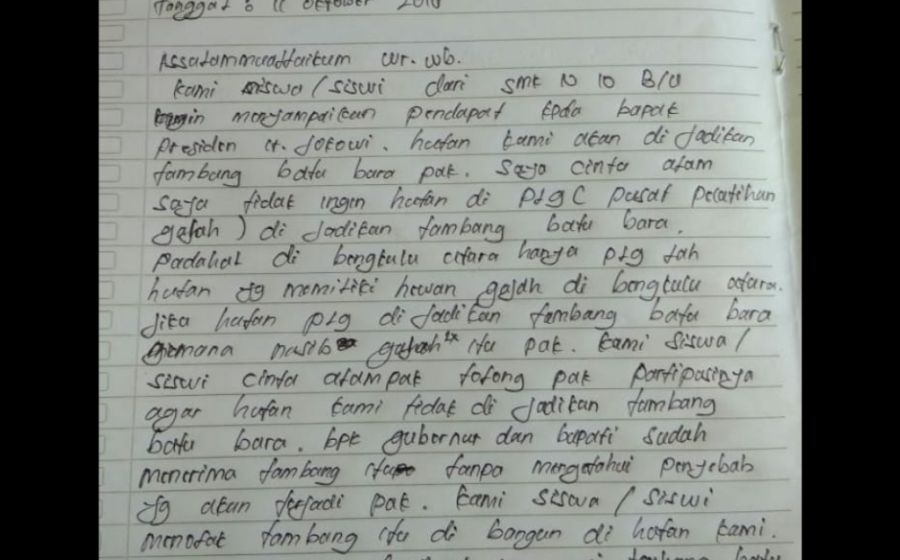 Tanggal : 11 Oktober 2018
Assalammuallaikum wr. wb.
kami siswa / siswi dari smk N 10 B/U
ingin menyampaikan pendapat kpda bapak
presiden Ir. Jokowi. hutan kami akan di Jadikan
tambang batu bara pak. saya cinta alam
saya tidak ingin hutan di PLG C pusat pelatihan
gajah ) di Jadikan tambang batu bara.
padahal di bengkulu utara hanya plg lah
hutan yg memiliki hewan gajah di bengkulu utara.
Jika hutan plg di Jadikan tambang batu bara
gimana nasib gajah" itu pak. kami siswa /
siswi cinta alam pak tolong pak partipasinya
agar hutan kami tidak di Jadikan tambang
batu bara. bpk gubernur dan bupati sudah
menerima tambang itu tanpa mengetahui penyebab
yg akan terjadi pak. kami siswa / siswi
menolak tambang itu di bangun di hutan kami.